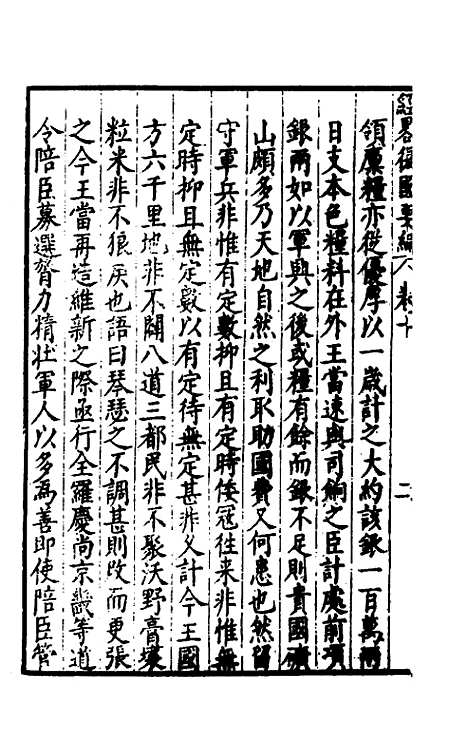 經畧復國要編 卷十 二
領廩糧亦從優厚以一歲計之大約該銀一百萬兩
日支本色糧料在外王當速與司餉之臣計處前項
銀兩如以軍興之後或糧有餘而銀不足則貴國礦
山頗多乃天地自然之利取助國費又何患也然留
守軍兵非惟有定數抑且有定時倭寇往来非惟無
定時抑且無定數以有定待無定甚非义計今王國
方六千里地非不闊八道三都民非不聚沃野膏壤
粒米非不狼戾也語曰琴瑟之不調甚則改而更張
之今王當再造維新之際亟行全羅慶尚京畿等道
令陪臣募選膂力精壯軍人以多為善即使陪臣管